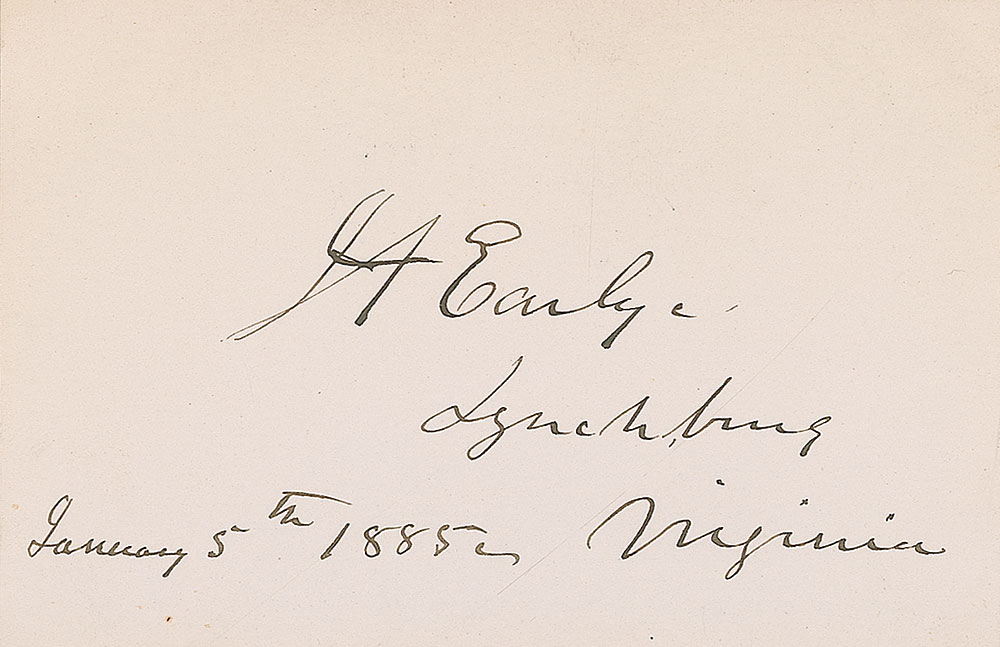 JA Early.
Lynchburg
Virginia
January 5th 1885.